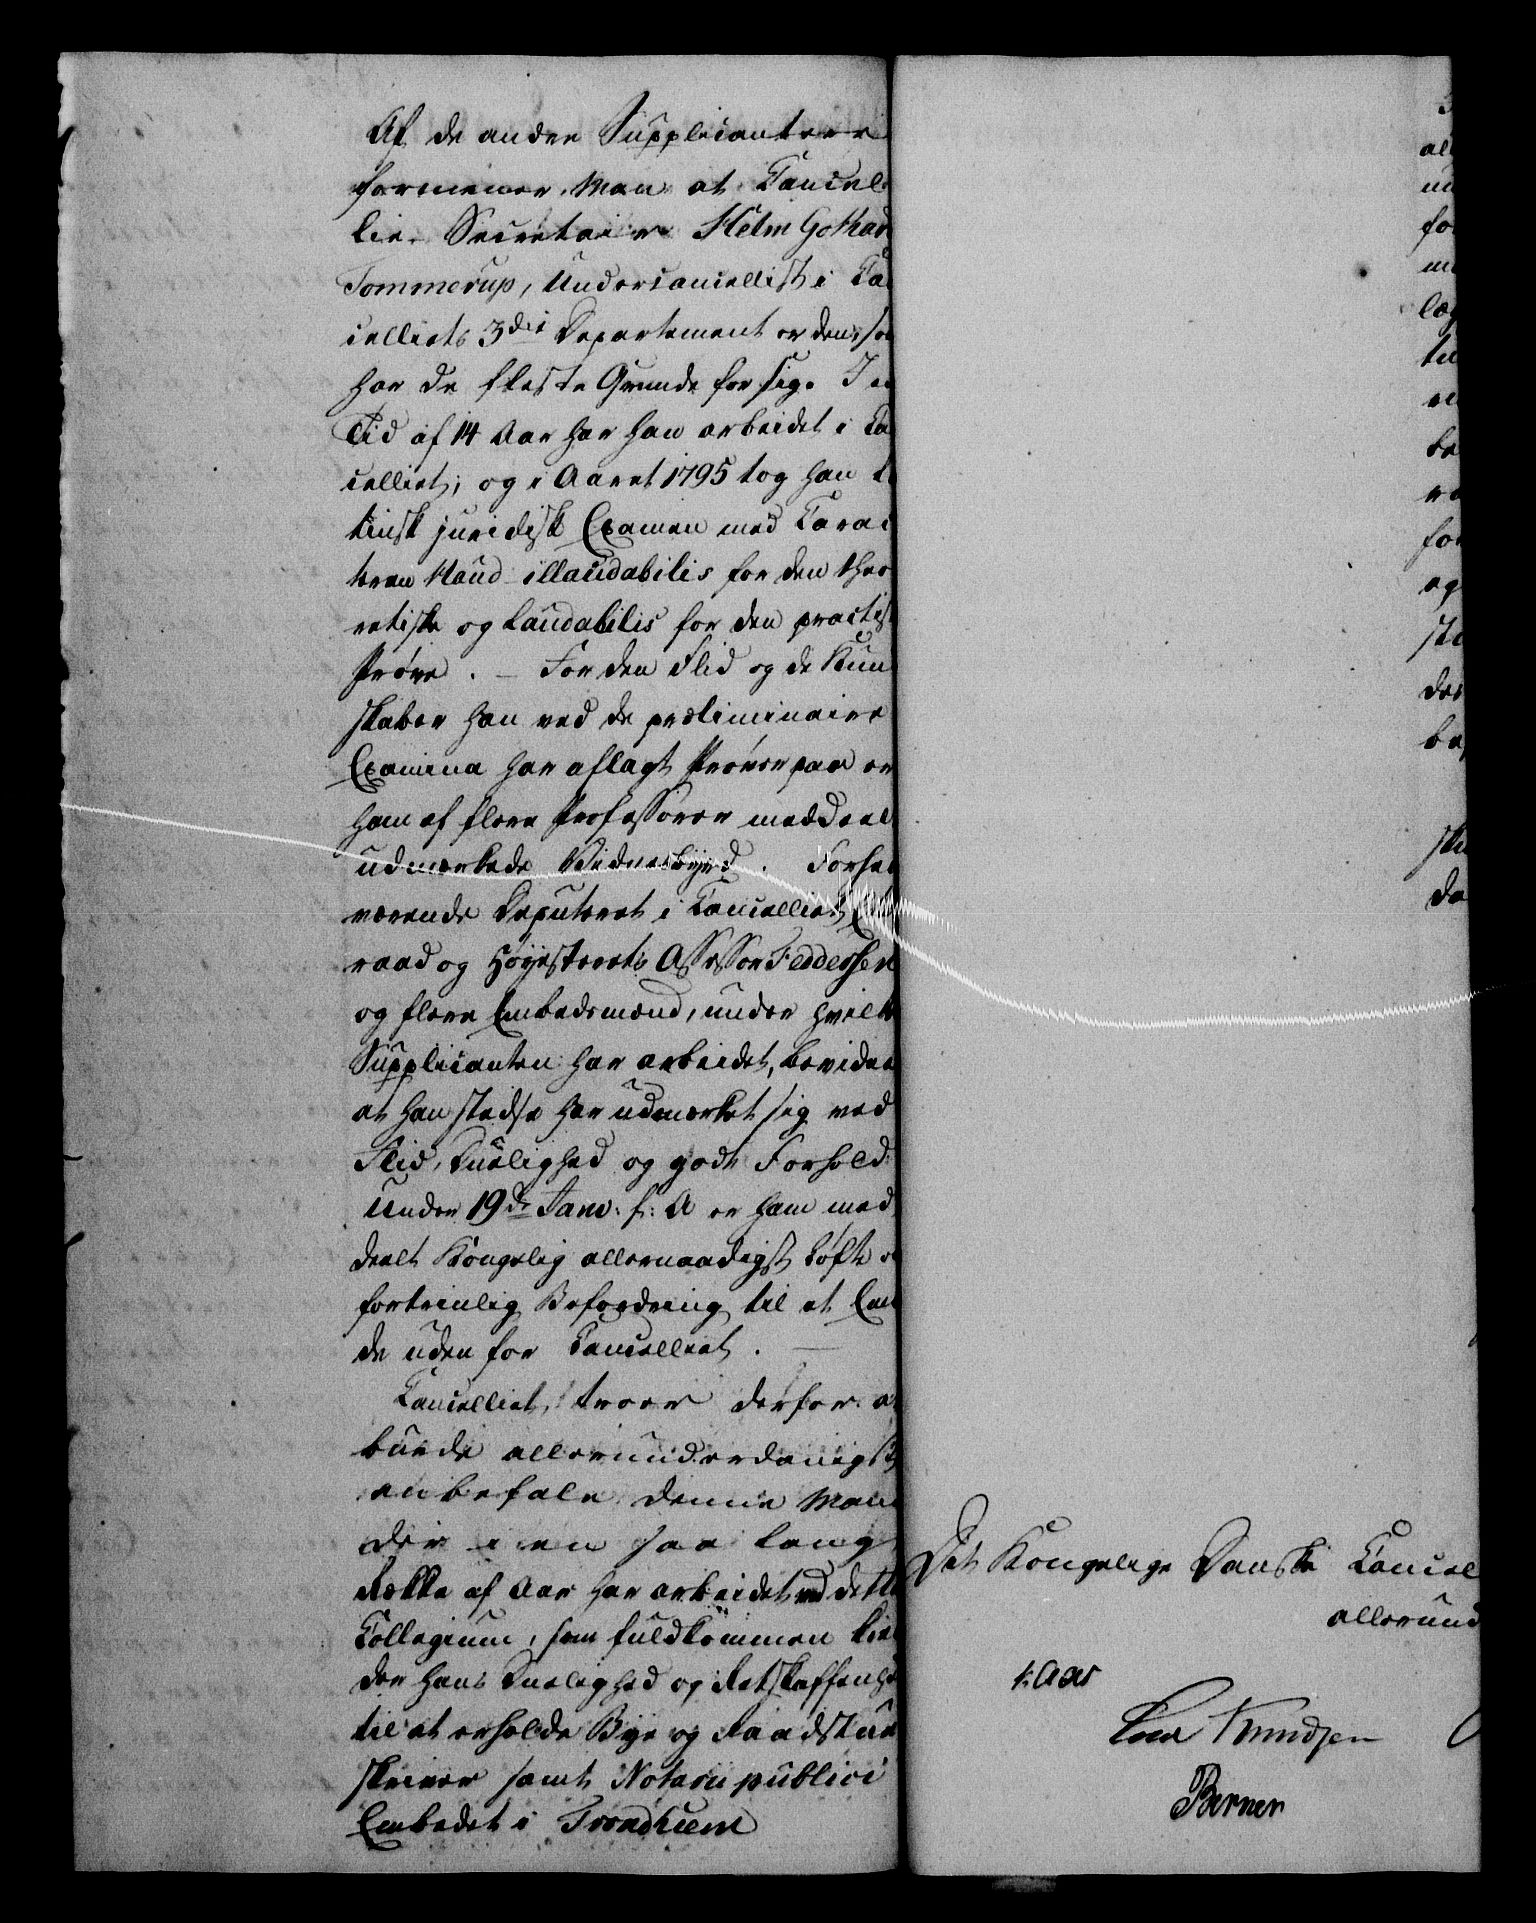 Af de andre Supplicantere
formener Man at Cancel
lie Secretair Helm Gothar
Tommerup, Undercancellist i Ca
celliets 3die Departement er den, so
har de fleste Grunde for sig. I en
Tid af 14 Aar har han arbeidet i Ca
celliet; og i Aaret 1795 tog han L
tinsk juridisk Examen med Carac
teren Haud illaudabilis for den theo
retiske og Laudabilis for den practisk
Prøve. – For den Flid og de Kun
skaber han ved de præliminaire
Examina har aflagt Prøver paa er
ham af flere Professorer meddeel
udmærkede Vidnesbyrd. Forhe
værende Deputeret i Cancelliet, Etat
raad og Høyesterets Assessor Feddersen
og flere Embedsmænd, under hvilke
Supplicanten har arbeidet, bevidne
at han stedse har udmærket sig ved
Flid, Duelighed og godt Forhold.
Under 19de Janv: f: A er ham med
deelt Kongelig allernaadigst Løfte o
fortrinlig Befordring til et Em
de uden for Cancelliet. –
Cancelliet troer derfor a
burde allerunderdanigst
anbefale denne Man
der i en saa lang
Række af Aar har arbeidet ved dette
Collegium, som fuldkommen kien
der hans Duelighed og Retskaffenhed
til at erholde Bye og Raadstue
skriver samt Notarii publici
Embedet i Trondhiem
Det Kongelige Danske Cancel
allerund
Knudsen
Berner
al
fo
læg
til
be
fo
og
ste
der
be
ske
da